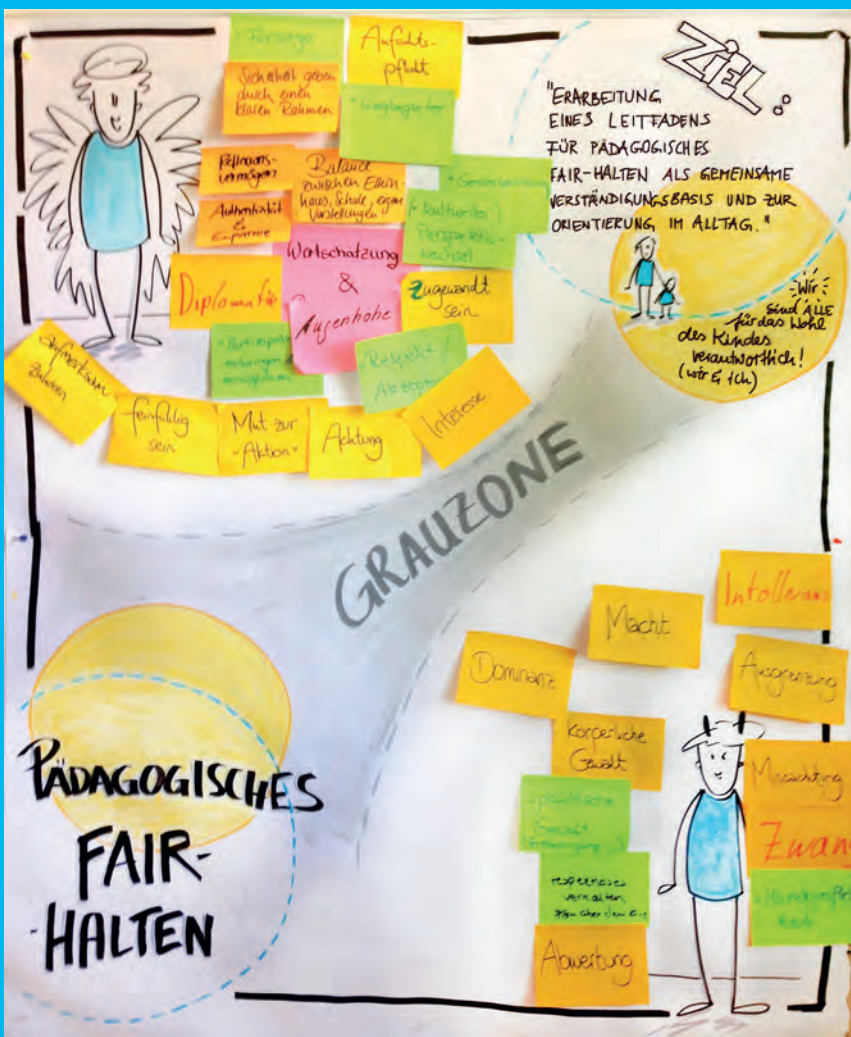 Fürsorge
Aufsichts-
pflicht
Sicherheit geben
durch einen
klaren Rahmen
Reflexions-
vermögen
Balance
zwischen Eltern-
haus, Schule, eigen
Vorstellungen
Authentizität
&
Empathie
(+ kulturelle)
Perspektiv-
wechsel
Wertschätzung
&
Augenhöhe
Diplomatie
Zugewandt
sein
Respekt /
Akzeptanz
aufmerksam
zuhören
feinfühlig
sein
Mut zur
"Aktion"
Achtung
Interesse
ZIEL:
"ERARBEITUNG
EINES LEITFADENS
FÜR PÄDAGOGISCHES
FAIR-HALTEN ALS GEMEINSAME
VERSTÄNDIGUNGSBASIS UND ZUR
ORIENTIERUNG IM ALLTAG."
Wir
sind ALLE
für das Wohl
des Kindes
verantwortlich!
(wir & ich)
GRAUZONE
PÄDAGOGISCHES
FAIR-
-HALTEN
Macht
Intolleranz
Dominanz
Ausgrenzung
körperliche
Gewalt
Missachtung
psychische
Gewalt
Zwang
respektloses
verhalten
Abwertung